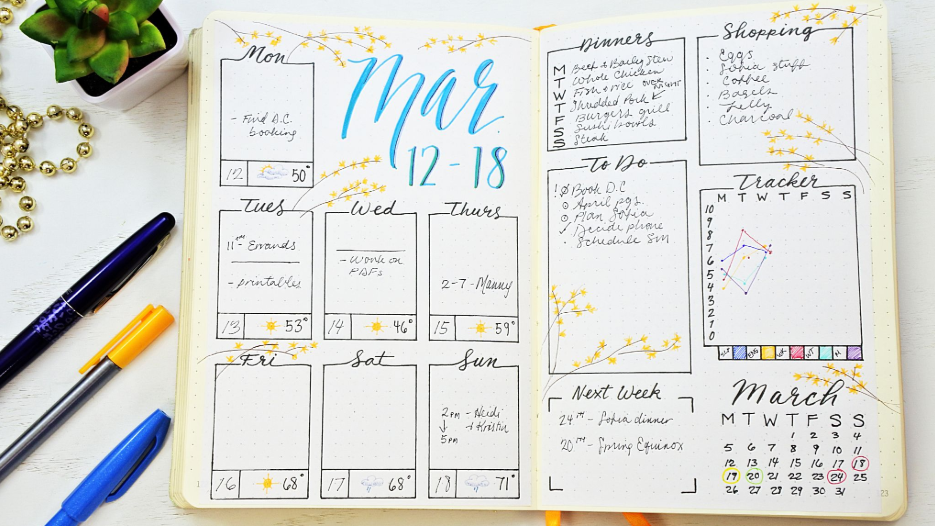 Mon
- Find D.C.
booking
12 50°
Mar
12-18
Tues
11am Errands
- printables
13 53°
Wed
- Work on
PDFs
14 46°
Thurs
2-7 - Manny
15 59°
Fri
16 68°
Sat
17 68°
Sun
2pm - Heidi
↓ + Kristin
5pm
18 71°
Dinners
M Beef + Barley Stew
T Whole Chicken
W Fish + rice
T Shredded Pork
F Burgers grill
S Sushi bowls
S Steak
Shopping
· Eggs
· Sofia stuff
· Coffee
· Bagels
· Jelly
· Charcoal
To Do
! Book D.C
April pgs.
Plan Sofia
✓ Decide phone
· Schedule SM
Tracker
M T W T F S S
10
9
8
7
6
5
4
3
2
1
0
Next Week
24th - Sofia dinner
20th - Spring Equinox
March
M T W T F S S
1 2 3 4
5 6 7 8 9 10 11
12 13 14 15 16 17 18
19 20 21 22 23 24 25
26 27 28 29 30 31
23